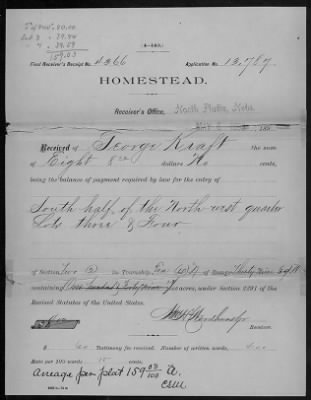 80.00
39.94
39.09
159.03
Final Receiver's Receipt No. 4366 Application No. 13,787
HOMESTEAD.
Receiver's Office, North Platte, Nebr.
189
Received of George Kraft the sum
of Eight dollars No cents,
being the balance of payment required by law for the entry of
South half of the North west quarter
Lots three & Four
of Section Two (2) in Township Ten (10) N of Range Thirty Nine
containing acres, under Section 2291 of the
Revised Statutes of the United States.
$8
Receiver.
$ Testimony fee received. Number of written words,
Rate per 100 words 15 cents.
Acreage per plat 159 03/100 A.